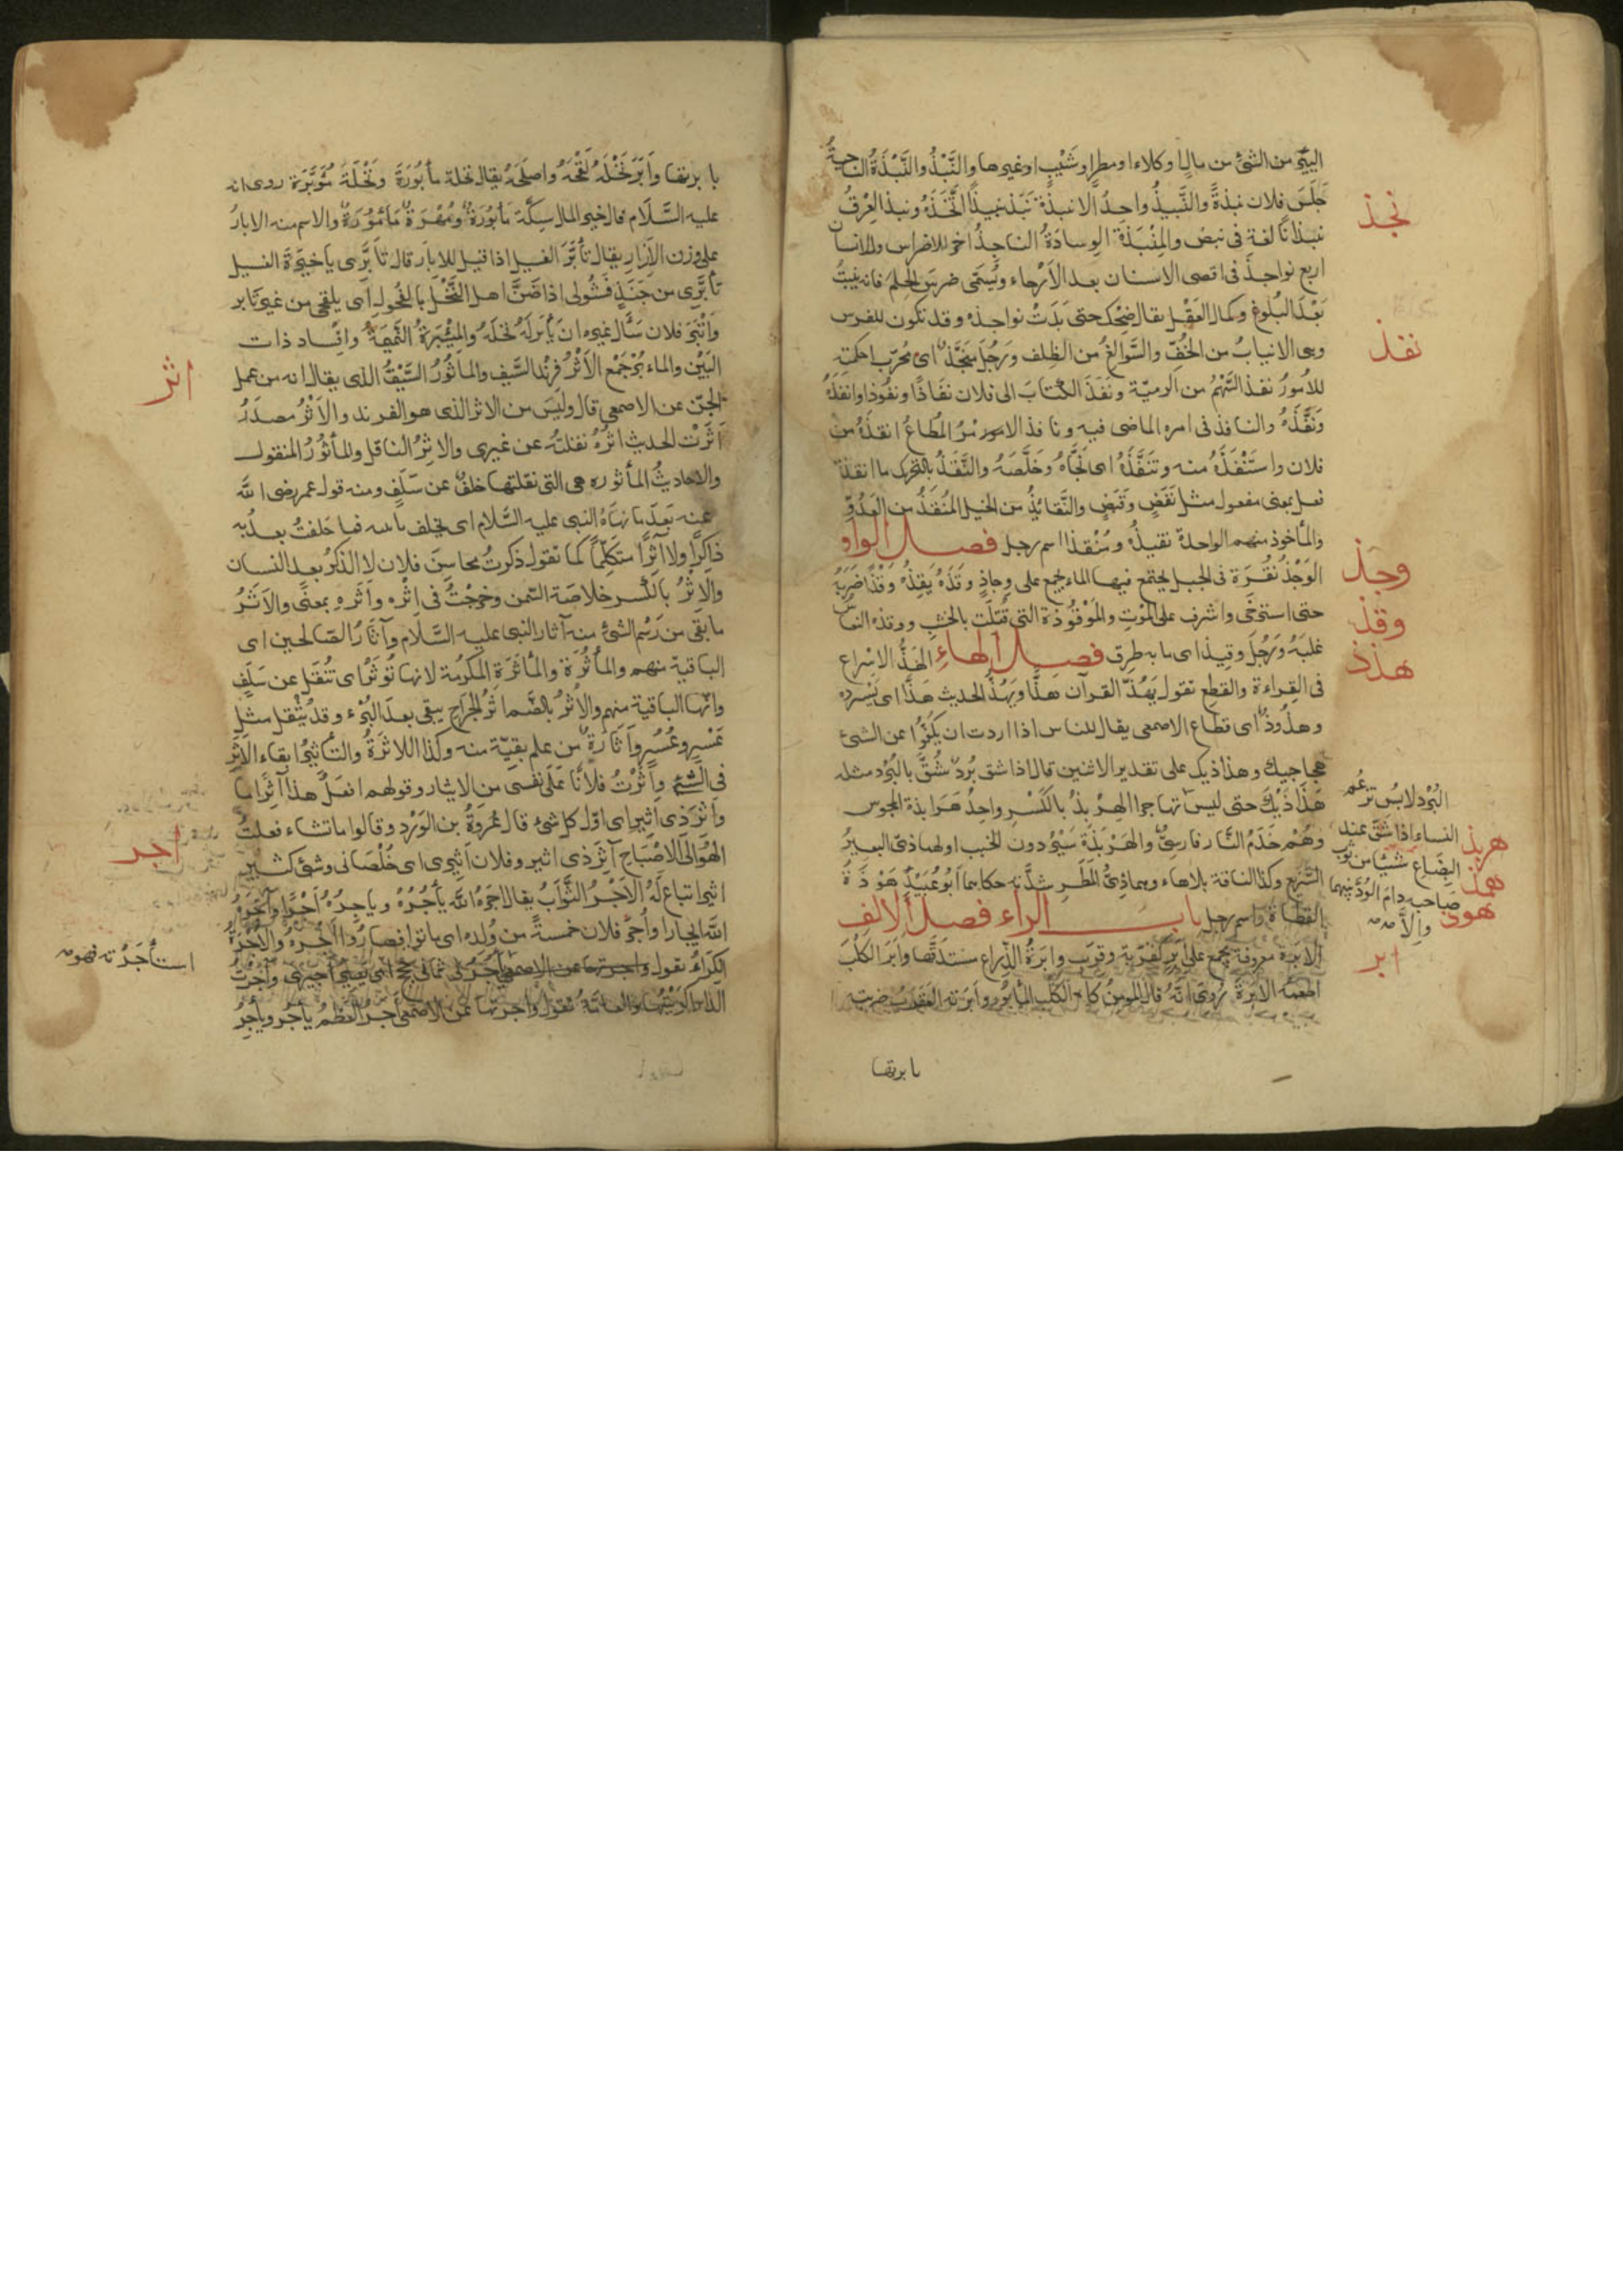 اليسير من الشئ من مال او كلاء او مطر او شَيْب او غيرها والنَّبْذُ والنَّبْذَةُ الناحية
جَلَسَ فلان نبذةً والنَّبيذُ واحِدُ الانبذة نَبَذ نبيذًا اتَّخَذَهُ ونبذ العِرْقُ
نبذانًا لغة فى نبض والمِنْبَذَة الوِسادَةُ الناجِذُ اخر الاضراس وللانسان
اربع نواجذ فى اقصى الاسنان بعد الارْحاء ويُسَمّى ضرسَ الحِلم فانه ينبتُ
بَعْدَ البُلوغ وكمال العَقْل يقال ضحِك حتى بَدَتْ نواجذه وقد تكون للفرس
وهى الانيابُ من الخُفّ والسَّوالغُ من الظِلف ورَجُل مُنَجَّذ اى مُجَرّب احكمته
للأمورُ نفذ السَّهْمُ من الرميّة ونَفَذَ الكتابَ الى فلان نفَاذًا ونفُوذا وانفَذَهُ
ونَفَّذَهُ والنافذ فى امره الماضى فيه ونافذ الامور مُرُ المُطاعُ انقذهُ من
فلان واسْتَنْقَذَهُ منه وتَنَقَّذَهُ اى نَجّاهُ وخَلَّصَهُ والنَّقَذُ بالتحريك ما انقذتَه
فعل بمعنى مفعول مثل نَقَضٍ وقَبَضٍ والنَّقائِذُ من الخيل المُنْقَذُ من العَدُوّ
والمأخوذ منهم الواحدة نقيذُ ومُنْقذ اسم رجل فصل الواو
الوَجْذُ نُقْرَة فى الجبل يجتمع فيها الماء يجمع على وِجاذٍ وقَذَهُ يَقِذُهُ وَقْذًا ضَرَبَهُ
حتى استرخَى واشرف على المَوْتِ والمَوْقُوذة التى قُتِلَت بالخشب ووقذه النعاسُ
غلبَهُ ورَجُلَ وقيذ اى ما به طرق فصل الهاء الهَذُّ الاسْراع
فى القِراءة والقطعِ تقول يَهُذُّ القرآن هذًّا ويَهُذُّ الحديث هَذًّا اى يَسْرده
وهذُوذٌ اى قطاع الاصمعى يقال للناس اذا اردت ان يكفّوا عن الشئ
هجاجيك وهذاذيك على تقدير الاثنين قال اذا شق بُردٌ شُقَّ بالبُرْد مثله
هَذَاذَيْكَ حتى ليسَ الهِرْبِذُ بالكَسْر واحِدُ هَرَابذة المجوس
وهُمْ خَدَمُ النَّار فارسِىٌّ والهَرْبَذَة سَيْرٌ دون الخبب اوهماذىّ البعير
السَّريع وكذا الناقة بلا هاء وهماذىّ المَطَر شدَّته حكاهما ابُو عُبَيْدٍ هَوْذَةُ
القطاة واسم رجل باب الراء فصل الالف
الابْرة معروفة يجمع على إبَر كقربة وقِرَب وابْرَةُ الذِّراع مستدقّها وأبَرَ الكلْبَ
اطعمه الابرةَ رُوِى أنّهُ قال المومِنُ كالكَلْب المأبُور وأبَرَته العَقْرَبُ ضربته
بابرتها
نجذ
نفذ
وجذ
وقذ
هذذ
البُرْد لابِسُ تزعُم
النساء اذا شَقّ عند
البِضَاع شيْئًا من ثوب
صاحبه دام الوُدّ بينهما
والّا
هربذ
همذ
هوذ
ابر
بابرتها وأبَّرَ نَخْلَهُ لَقَّحَهُ واصلَحَهُ يقال نخلة مأبُورَة ونَخْلَة مُؤَبَّرَة روى انه
عليه السَّلَام قال خير المال سِكَّة مَأبُورَة ومُهْرَة مَأمُورَة والاسم منه الابارُ
على وزن الإزارِ يقال تأبَّرَ الفسيل اذا قبل للابار قال تأَبَّرِى ياخَيْرَةَ الفسيل
تأبَّرِى من جَنَذٍ فَشُولى اذ ضَنَّ اهل النَّخْلِ بالفُحول اى يلقحى من غير تابير
وائْتَبَرَ فلان سَأل غيره ان يَأبُرَ لَهُ نخلَهُ والمِئْبَرَةُ النَّمِيمَةُ وافْسَاد ذات
البَيْن والماء بُرجَمْع الأثْرُ فِرِنْد السَّيف والمأثُورُ السَّيْفُ الذى يقال انه من عمل
الجنّ عن الاصمعى قال وليسَ من الاثر الذى هو الفرند والأثْرُ مصدَرُ
أثَرْت الحديث اثرُهُ نقلتُه عن غيرى والاثِرُ الناقل والمأثُورُ المنقول
والاحاديثُ المأثوره هى التى نقلتها خلفٌ عن سَلَفٍ ومنه قول عمر رضى الله
عنه بَعْدَ ما نهاهُ النبى عليه السَّلام اى يحلف بابيه فما حَلفتُ بعدُ به
ذاكِرًا ولا آثرًا متكلّمًا كما تقول ذكرتُ محاسِنَ فلان لا الذكر بعد النسان
والاِثْرُ بالكَسر خلاصَة السّمن وخرجْتُ فى اِثْره وأثَره بمعنًى والاَثَرُ
ما بقى من رَسْم الشئ منه آثار النبى عليه السَّلام وآثارُ الصّالحين اى
الباقية منهم والمأثُرَة والمأثَرَةِ المكرُمَة لانها تُوثَرُ اى تُنْقَل عن سَلَفٍ
وانّها الباقية منهم والأُثرُ بالضّم اثرُ الجراحِ يبقى بعدَ البُرْء وقد يُثْقل مثل
عُسْرٍ وعُسُرٍ واثارةٌ من علم بقيّة منه وكذا اللاثرَةُ والتأثيرُ ابقاء الاثَر
فى الشئ وآثَرْتُ فلانًا عَلَى نفسى من الايثار وقولهم افعَلْ هذا آثِرًا ما
وآثِرَ ذى أثيرٍ اى اوّل كل شئ قال عُروَةُ بن الوَرْد وقالوا ما تشاء فعلتُ
الهُو الى الاصْبَاح آثِرَ ذى اثير وفلان أثِيرى اى خُلْصَانى وشئ كثير
اثير اتباع لَهُ الاَجْرُ الثَّوَابُ يقال اجَرَهُ اللّٰه يأجُرُهُ وياجِرُهُ أجْرًا وآجَرَهُ
اللّٰه ايجارا واُجِرَ فلان خمسةً من وُلِده اى ماتوا فصارُوا اَجْرَهُ والاُجْرَةُ
الكِرَاءُ تقول واجرتها عن الاصمعى اَجَرَنى ثمانى حجج اى يصيرُ اجيرى وآجَرْتُ
الدار اكرَيْتُها والعامّة تقول واجرتها عن الاصمعى أجرَ العَظْمُ يأجُر ويأجِرُ
اثر
اجر
استأجَرْته فهو